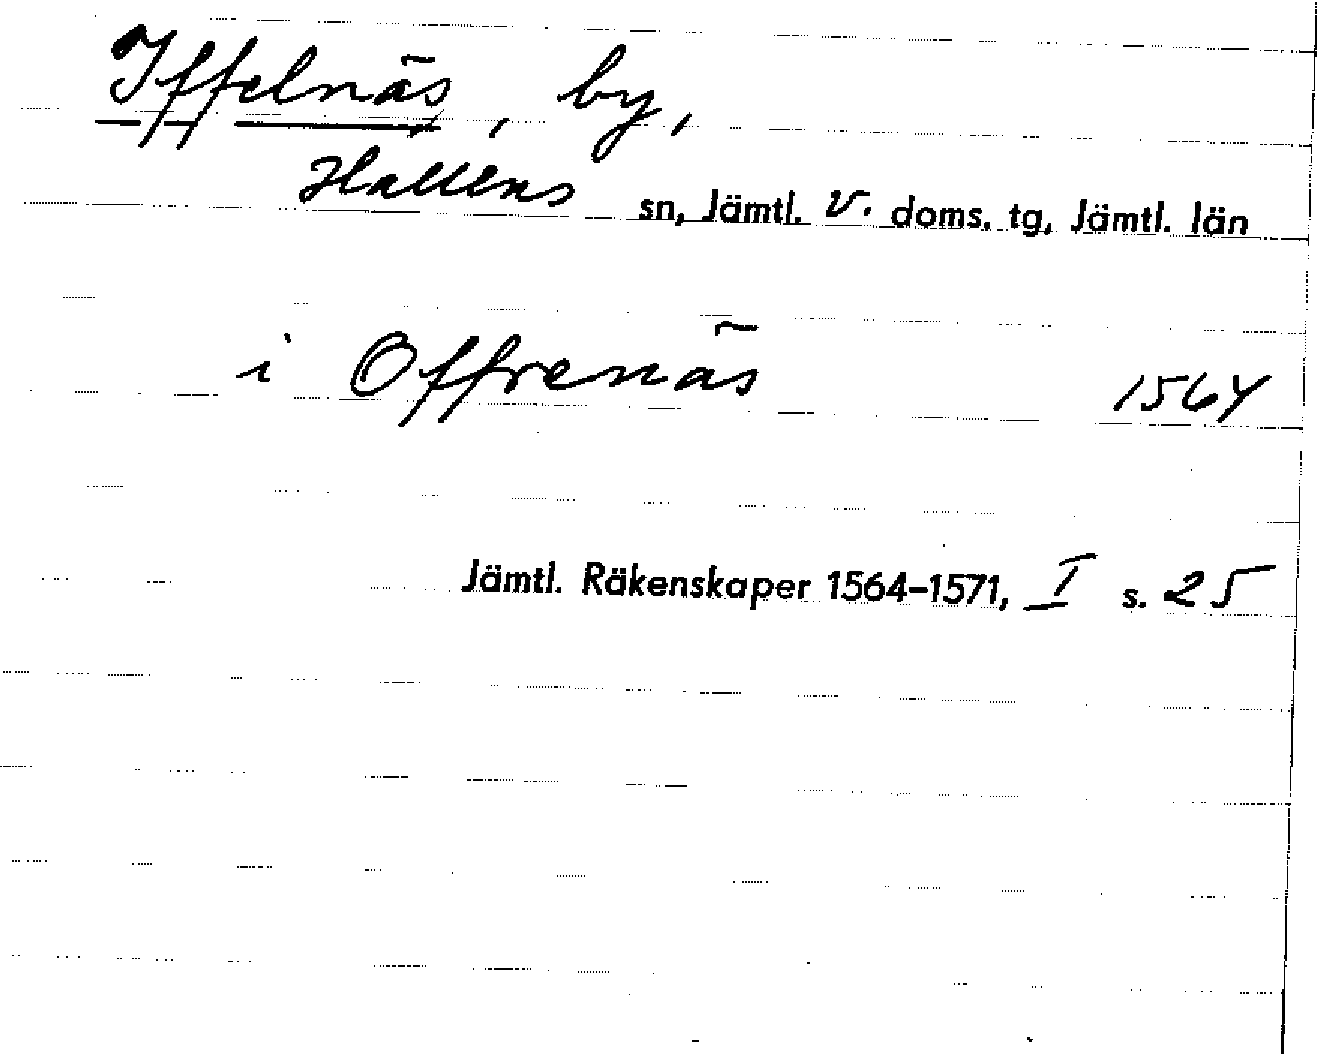 Iffelnäs, by,
Hallens sn, Jämtl. v. doms. tg, Jämtl. län
i Offrenäs 1564
Jämtl. Räkenskaper 1564–1571, I s. 25